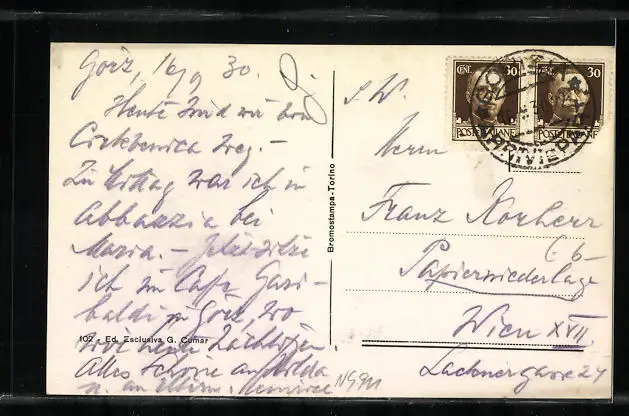 Görz, 16/9 30.
Heute sind wir von
Cirkvenica weg. -
Zu Mittag war ich in
Abbazzia bei
Maria. - Jetzt sitze
ich im Caffe Gari-
baldi in Görz, wo
wir heute
Alles Schöne an
u. an
102 - Ed. Esclusiva G. Cumar
Bromostampa-Torino
CENT. 30
POSTE ITALIANE
CENT. 30
POSTE ITALIANE
S. W.
Herrn
Franz Korherr
Papierniederlage
Wien XVII
Lacknergasse 24